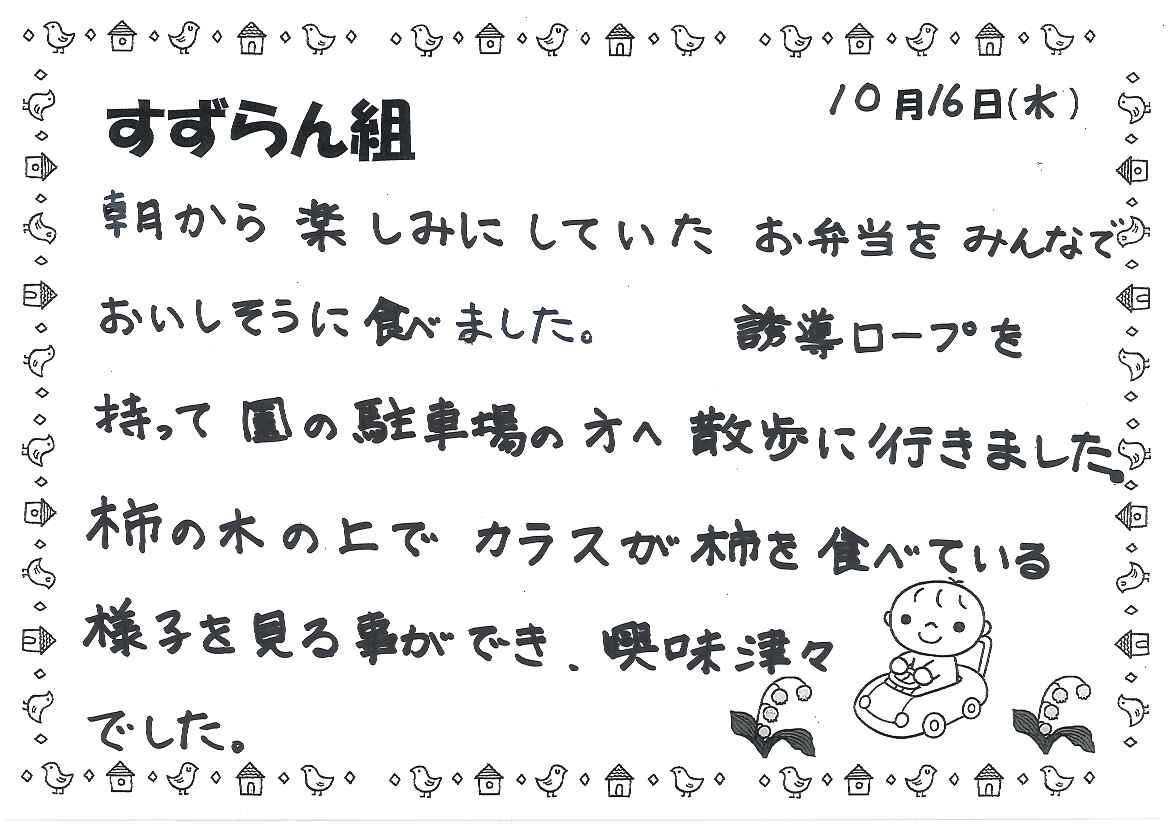 すずらん組
10月16日(水)
朝から楽しみにしていたお弁当をみんなで
おいしそうに食べました。 誘導ロープを
持って園の駐車場の方へ散歩に行きました。
柿の木の上でカラスが柿を食べている
様子を見る事ができ、興味津々
でした。